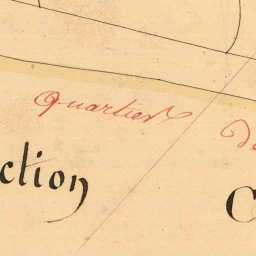 Quartier
De
ction
C